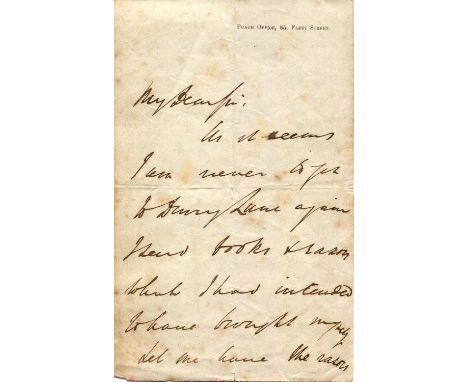 Punch Office, 85, Fleet Street.
My Dear Sir,
As it seems
I am never to get
to Drury Lane again
I send books & razors
which I had intended
to have brought myself
Let me have the razors